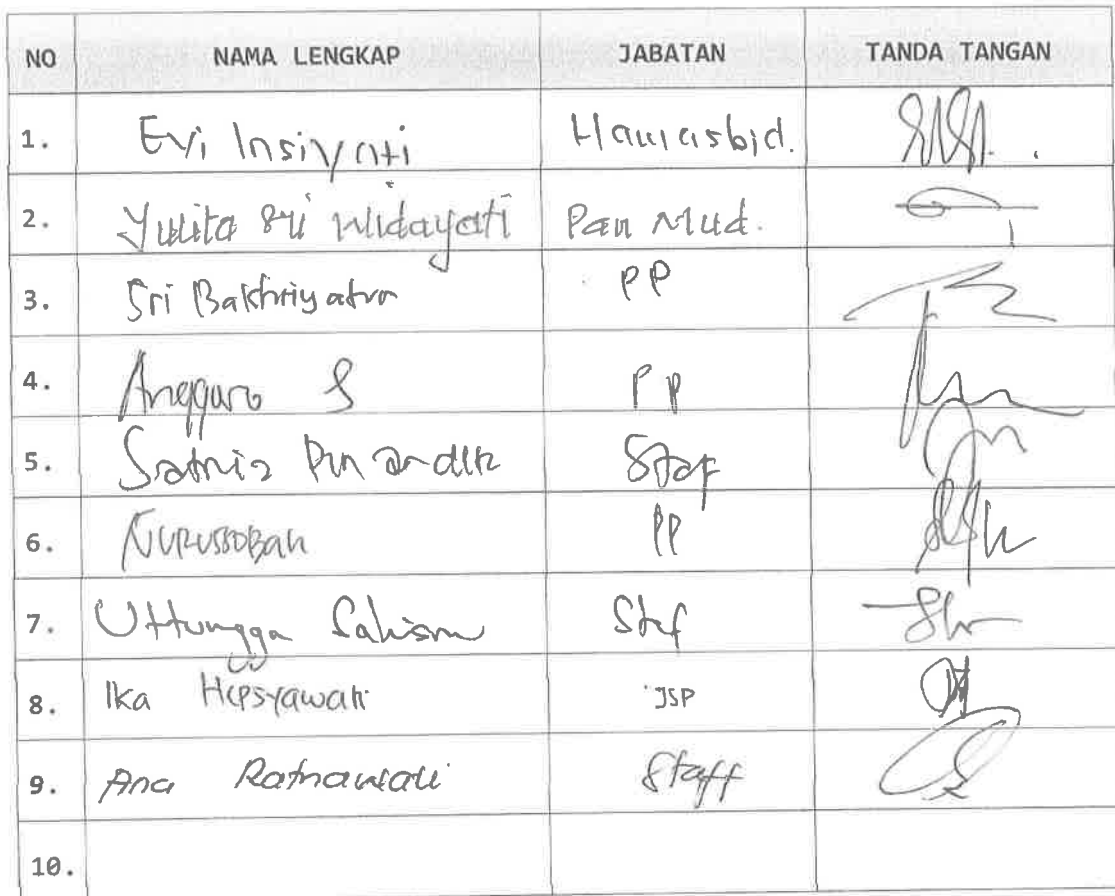 NO NAMA LENGKAP JABATAN TANDA TANGAN
1. Evi Insiyati Hawasbid.
2. Yulita Sri Widayati Pan Mud.
3. Sri Bakhriyatun PP
4. Anggoro S PP
5. Satria Staf
6. Nurussobah PP
7. Uttungga Staf
8. Ika JSP
9. Ana Ratnawati Staff
10.